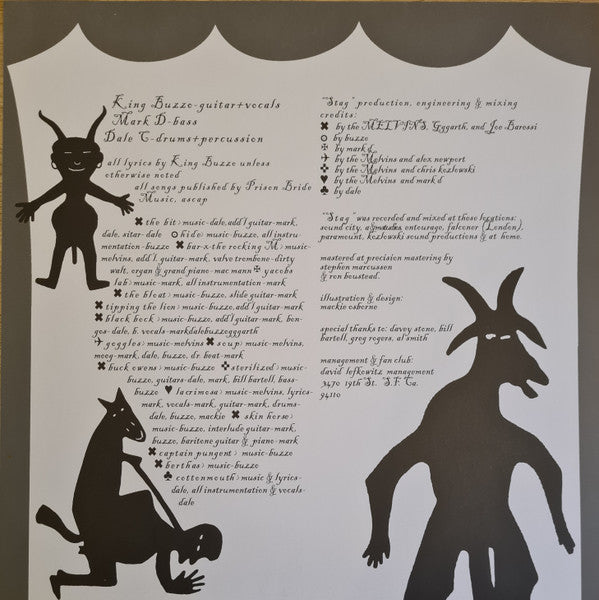 King Buzzo-guitar+vocals
Mark D-bass
Dale C-drums+percussion
all lyrics by King Buzzo unless
otherwise noted
all songs published by Prison Bride
Music, ascap
the bit> music-dale, add'l guitar-mark,
dale, sitar-dale hide> music-buzzo, all instru-
mentation-buzzo bar-x-the rocking M> music-
melvins, add'l guitar-mark, valve trombone-dirty
walt, organ & grand piano-mac mann yacobs
lab> music-mark, all instrumentation-mark
the bloat> music-buzzo, slide guitar-mark
tipping the lion> music-buzzo, add'l guitar-mark
black bock> music-buzzo, add'l guitar-mark, bon-
gos-dale, b. vocals-markdalebuzzogggarth
goggles> music-melvins soup> music-melvins,
moog-mark, dale, buzzo, dr. beat-mark
buck owens> music-buzzo sterilized> music-
buzzo, guitars-dale, mark, bill bartell, bass-
buzzo lacrimosa> music-melvins, lyrics-
mark, vocals-mark, guitar-mark, drums-
dale, buzzo, mackie skin horse>
music-buzzo, interlude guitar-mark,
buzzo, baritone guitar & piano-mark
captain pungent> music-buzzo
berthas> music-buzzo
cottonmouth> music & lyrics-
dale, all instrumentation & vocals-
dale
"Stag" production, engineering & mixing
credits:
by the MELVINS, Gggarth, and Joe Barossi
by buzzo
by mark d
by the Melvins and alex newport
by the Melvins and chris kozlowski
by the Melvins and mark d
by dale
"Stag" was recorded and mixed at these locations:
sound city, a&m studios, entourage, falconer (London),
paramount, kozlowski sound productions & at home.
mastered at precision mastering by
stephen marcussen
& ron boustead.
illustration & design:
mackie osborne
special thanks to: davey stone, bill
bartell, greg rogers, al smith
management & fan club:
david lefkowitz management
3470 19th St. S.F. Ca.
94110